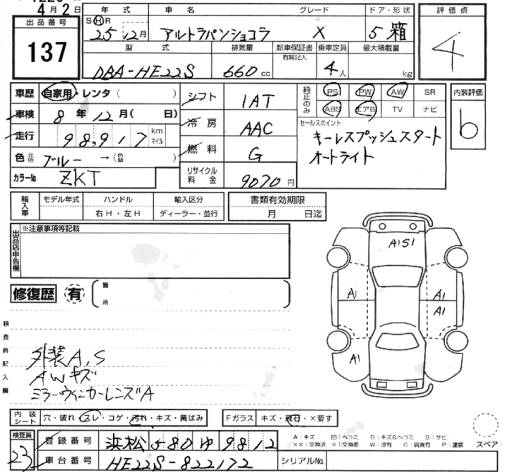 4月2日
出品番号 137
年式 S H R 25年12月
車名 アルトラパンショコラ
グレード X
ドア・形状 5 箱
評価点 4
型式 DBA-HE22S
排気量 660cc
新車保証書 有限記入
乗車定員 4人
最大積載量 kg
車歴 自家用・レンタ( )
車検 8年12月( 日)
走行 98,917 km マイル
色 元色 ブルー → (色 )
カラーNo ZKT
シフト 1AT
冷房 AAC
燃料 G
リサイクル料金 9070円
純正のみ PS PW AW SR
ABS エアB TV ナビ
セールスポイント
キーレスプッシュスタート
オートライト
内装評価 b
輸入車 モデル年式 ハンドル 右H・左H 輸入区分 ディーラー・並行
書類有効期限 月 日迄
出品店申告欄 ※注意事項等記載
修復歴 有 (箇所 )
検査員記入欄
外装A,S
AWキズ
ミラーウィンカーレンズA
A1S1
A1 A1
A1
内装シート 穴・破れ・スレ・コゲ・汚れ・キズ・黄ばみ
Fガラス キズ・飛石・×要す
スペア
検査員 23
登録番号 浜松580ゆ9812
車台番号 HE22S-822172
シリアルNo.